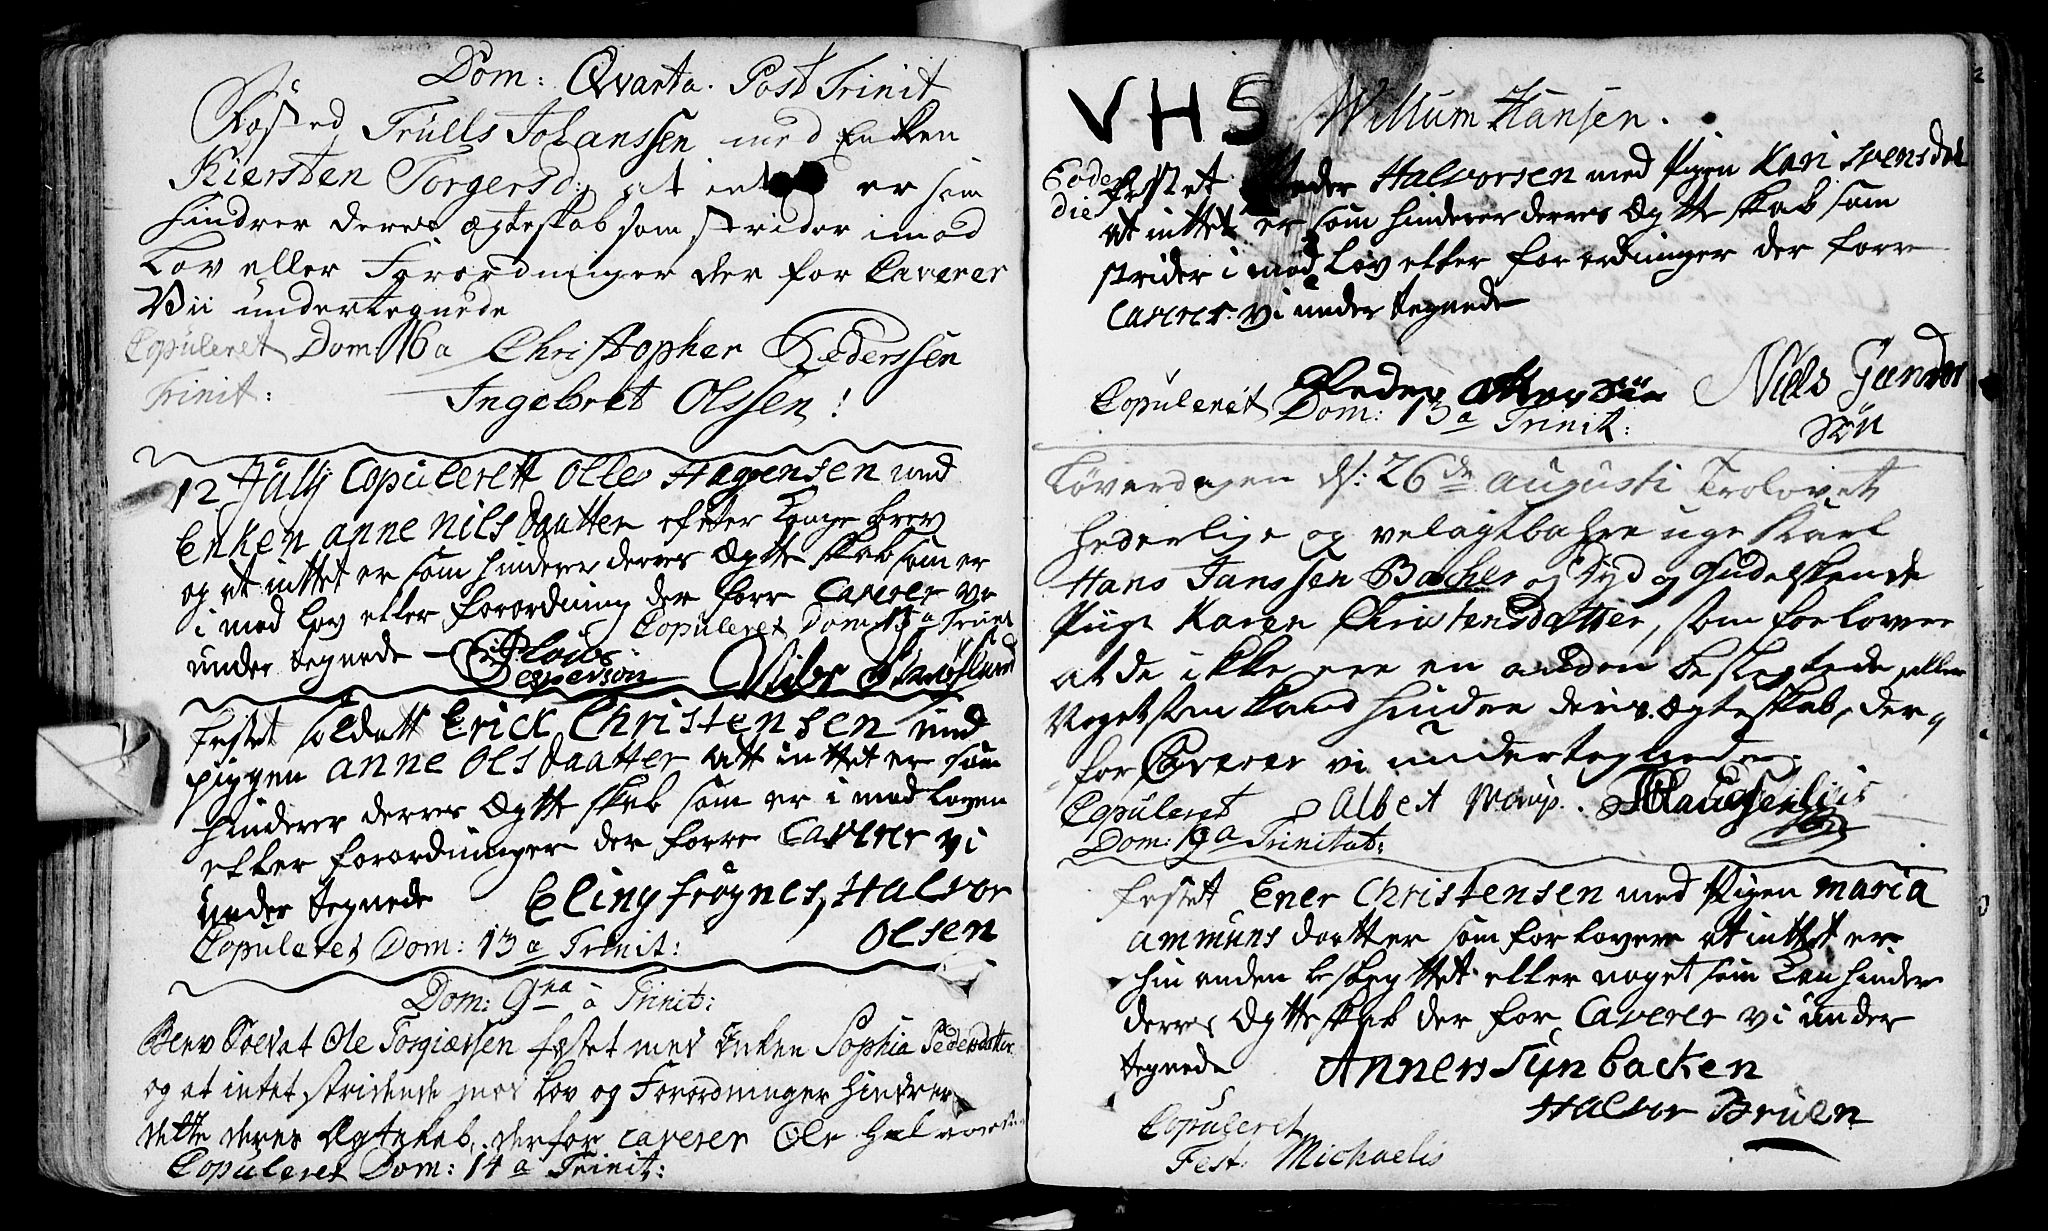 Dom: Qvarta. Post Trinit
Trülls Johanssen med Enken
Kiersten Torgersd: at intet er som
hindrer deres ægteskab som strider imod
Lov eller Forordninger der for Caverer
Vii undertegnede
Copuleret Dom: 16 a Christopher Pederssen
Trinit: Ingebret Olssen!
12 Jülij Copulerett Olle Hagensen med
Enken anne nils daatter efter Konge brev
og at inttet er som hinderer derres Ægtte skab som er
i mod lov eller forordning der forr Caverer vi
Copuleret Dom: 13 a Trinit
under tegnede
Jesperson
festet soldatt Erick Christensen med
piggen anne Ols daatter att inttet er som
hinderer derres Ægtte skab som er i mod loven
eller forordninger der forre Caverer vi
under tegnede Eling frøgnes, Halvor
Olsen
Copuleret Dom: 13 a Trinit:
Dom: 9na a Trinit:
Ole Torgiærssen festet med Enken Sophia Pedersdatter
og at intet stridende mod Lov og Forordninger hindrer
dette deres Ægteskab, derfor caverer Ole Halvorsen
Copuleret Dom: 14 a Trinit:
VHS Willum Hansen.
Eodem die festet Peder Halvorsen med Pigen Kari Svensdat
at inttet er som hinderer derres Ægtte skab som
strider i mod Lov eller forordninger der forr
Caverer vi under tegnede
Niels Gunder
søn
Copuleret Dom: 13 a Trinit:
Løverdagen d: 26de Augusti Trolovet
hederlige og velagtbahre unge Karl
Hans Janssen Bacher og Dyd og Gudelskende
Pige Karen Christensdatter, som forlover
at de ikke ere en anden beslegtede, eller
Noget som kand hindre deris Ægteskab, der,,
for Caverer vi undertegnede
Copuleret Albert
Dom: 19 a Trinitat:
festet Ener Christensen med Pigen maria
ammuns daatter som forlovere at inttet er
hin anden beslegttet eller noget som kan hinder
derres Ægtte skab der for Caverer vi under
tegnede Anners Synbacken
Halvor Bruen
Copuleret
Fest: Michaelis